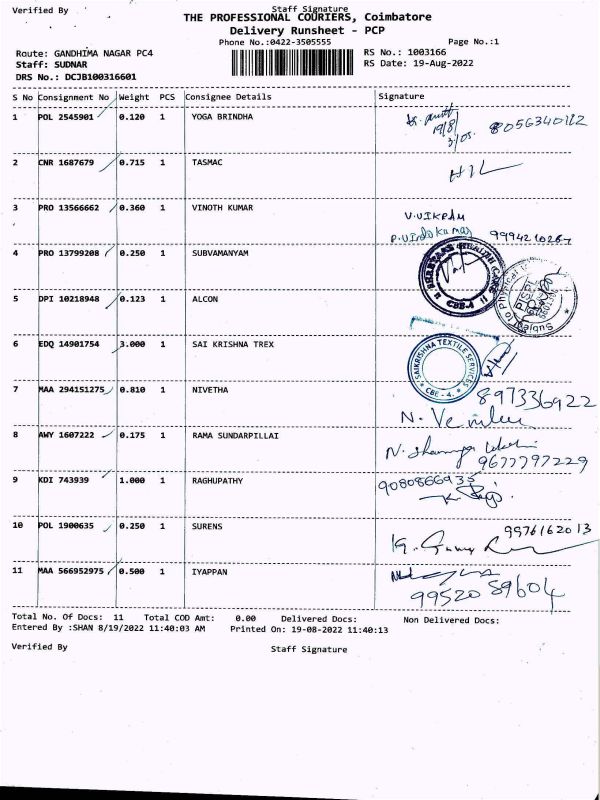 Verified By
Staff Signature
THE PROFESSIONAL COURIERS, Coimbatore
Delivery Runsheet - PCP
Phone No.:0422-3505555
Page No.:1
Route: GANDHIMA NAGAR PC4
RS No.: 1003166
Staff: SUDNAR
RS Date: 19-Aug-2022
DRS No.: DCJB100316601
S No Consignment No Weight PCS Consignee Details Signature
1 POL 2545901 0.120 1 YOGA BRINDHA
19/8/
8056340112
2 CNR 1687679 0.715 1 TASMAC
3 PRO 13566662 0.360 1 VINOTH KUMAR
V.VIKRAM
9994210267
4 PRO 13799208 0.250 1 SUBVAMANYAM
CBE-4
5 DPI 10218948 0.123 1 ALCON
Subject to Physical
6 EDQ 14901754 3.000 1 SAI KRISHNA TREX
SAIKRISHNA TEXTILE SERVICES
CBE - 4.
7 MAA 294151275 0.810 1 NIVETHA
897336922
8 AWY 1607222 0.175 1 RAMA SUNDARPILLAI
9677797229
9 KDI 743939 1.000 1 RAGHUPATHY
9080866935
10 POL 1900635 0.250 1 SURENS
9976162013
11 MAA 566952975 0.500 1 IYAPPAN
9952089604
Total No. Of Docs: 11 Total COD Amt: 0.00 Delivered Docs: Non Delivered Docs:
Entered By :SHAN 8/19/2022 11:40:03 AM Printed On: 19-08-2022 11:40:13
Verified By
Staff Signature